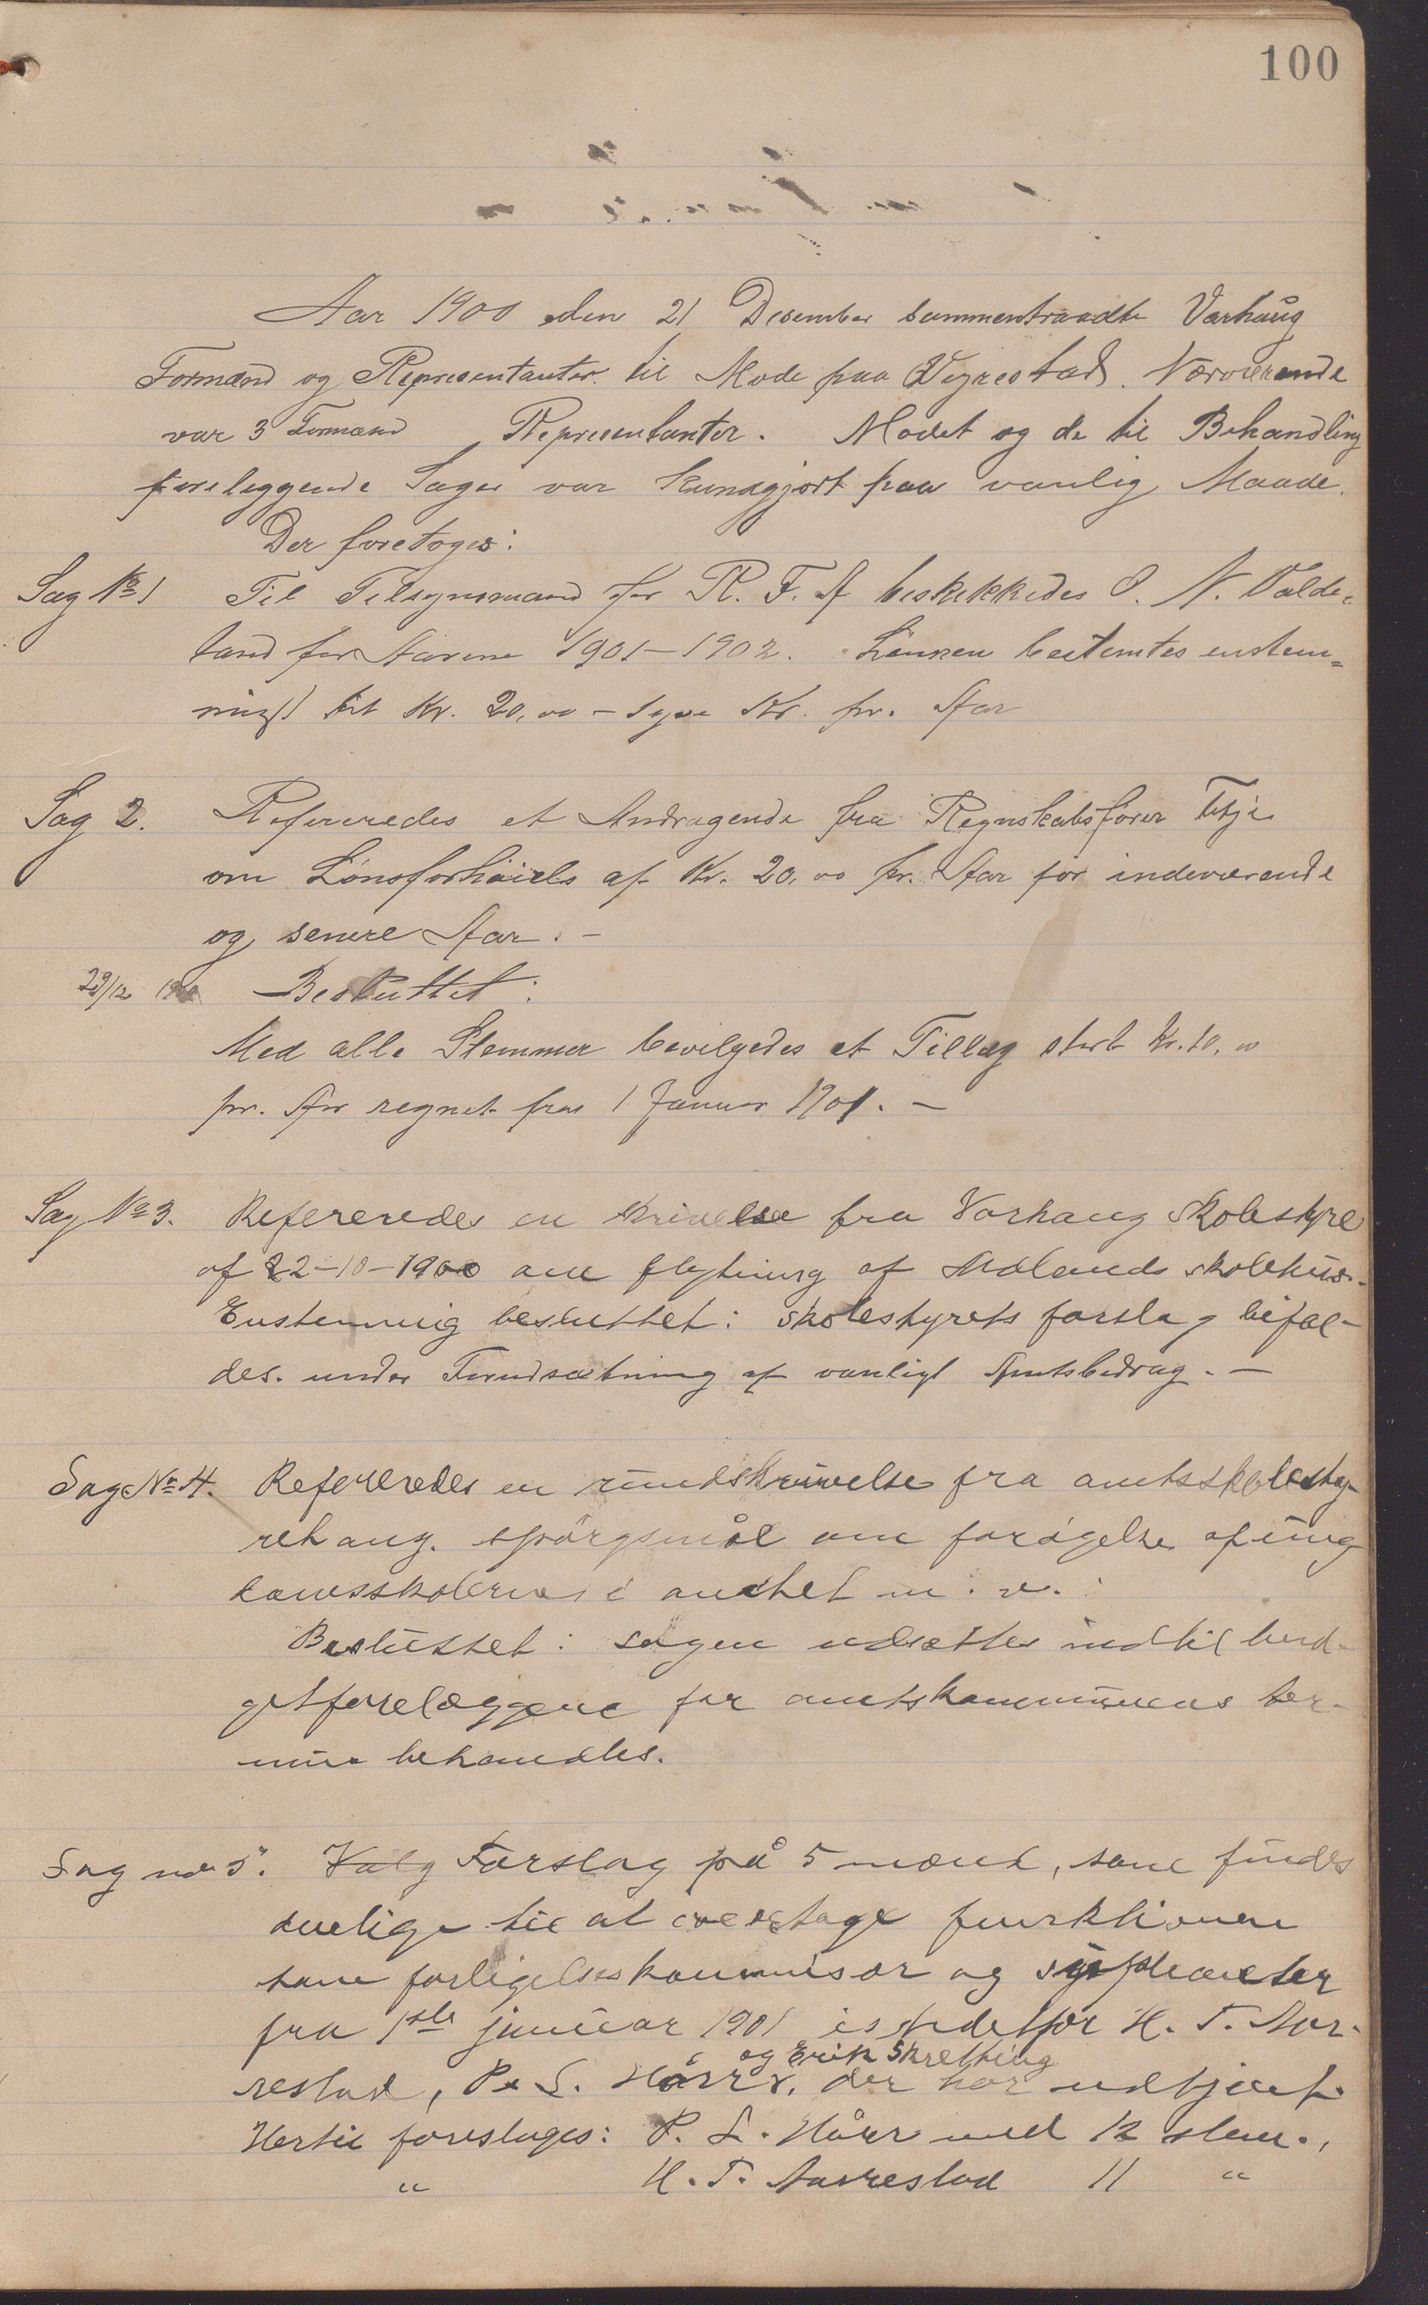 100
Aar 1900 den 21 Desember sammentraadte Varhaug
Formænd og Repræsentanter til Møde paa Vigrestad. Nærværende
var 3 Formænd Repræsentanter. Mødet og de til Behandling
foreliggende Sager var kundgjort paa vanlig Maade.
Der foretoges:
Sag No 1 Til Tilsynsmand for R. F. A beskikkedes O. N. Valde-
land for Aarene 1901-1902. Lønnen bestemtes enstem-
migt til Kr. 20,00 - tyve Kr. pr. Aar
Sag 2. Refereredes et Andragende fra Regnskabsfører
om Lønsforhøiels af Kr. 20,00 pr. Aar for indeværende
og senere Aar. -
29/12 1900 Besluttet:
Med alle Stemmer bevilgedes et Tillæg stort Kr. 10,00
pr. Aar regnet fra 1 Januar 1901. -
Sag No 3. Refereredes en skrivelse fra Varhaug skolestyre
af 22-10-1900 om flytning af skolehus.
Enstemmig besluttet: skolestyrets forslag bifal-
des. under Forudsætning af vanligt Amtsbidrag. -
Sag No 4. Refereredes en rundskrivelse fra amtsskolesty-
ret ang. spørgsmål om forøgelse af ung
domsskolerne i amtet m. v.
Besluttet: sagen udsættes indtil bud-
getforelæggene for amtskommunens ter-
min behandles.
Sag no 5. Valg Forslag på 5 mænd, som findes
duelige til at overtage funktionen
som forligelseskommisær og suppleanter
fra 1ste januar 1901 istedetfor H. T. Aar-
og Erik Skretting
restad, P. L. Hårr, der har udtjent.
Hertil foreslages: P. L. Hårr med 12 stem.,
" H. T. Aarrestad 11 "